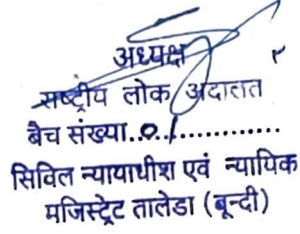 अध्यक्ष
राष्ट्रीय लोक अदालत
बैच संख्या..01..............
सिविल न्यायाधीश एवं न्यायिक
मजिस्ट्रेट तालेडा (बून्दी)